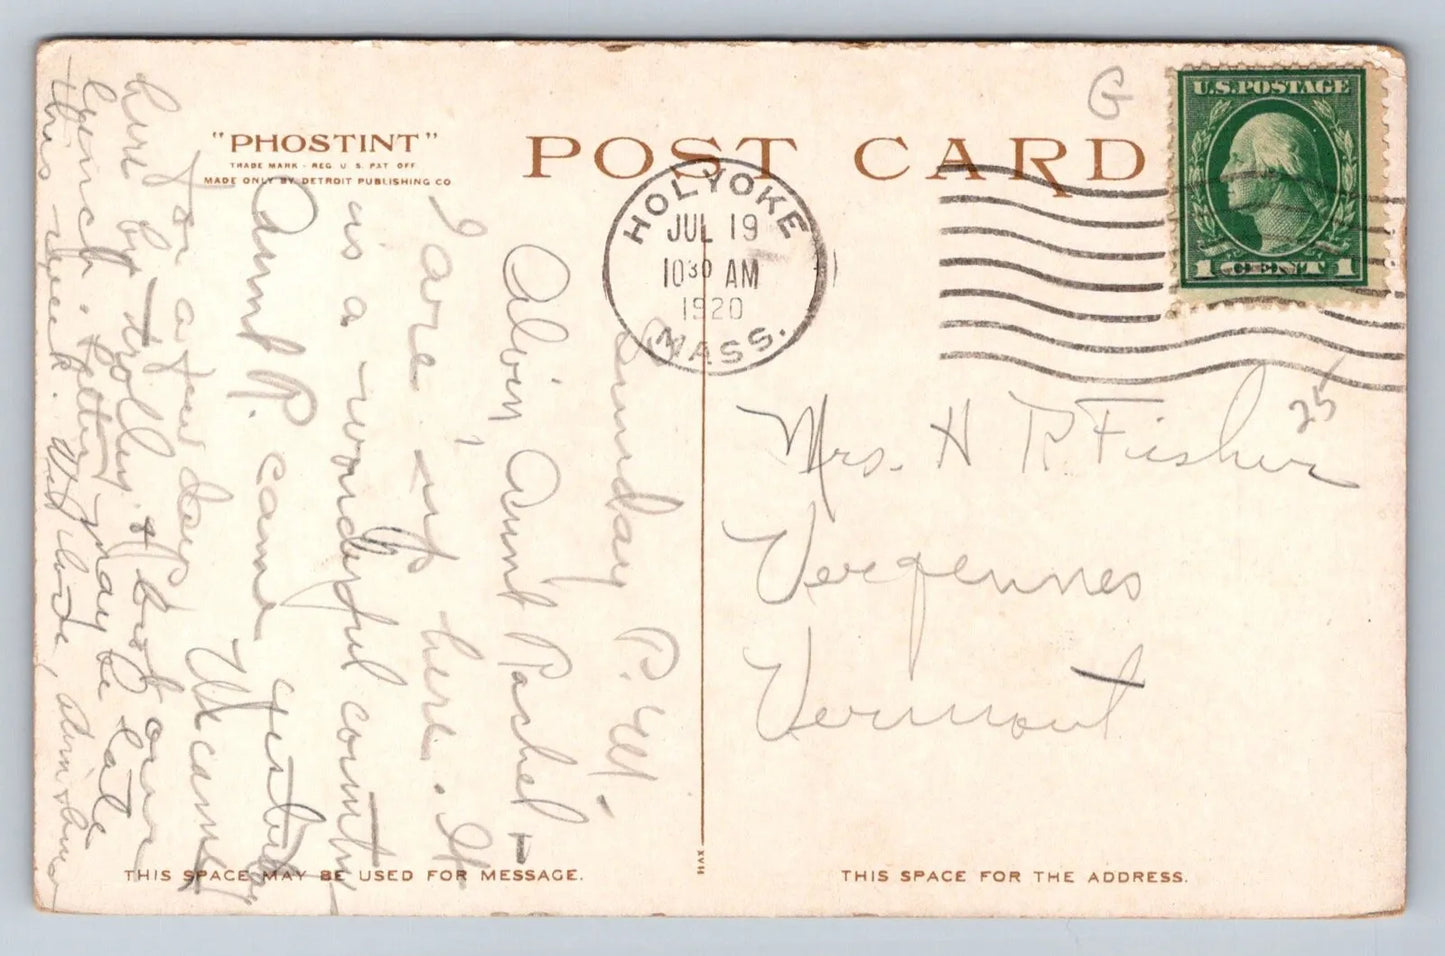 "PHOSTINT"
TRADE MARK - REG. U. S. PAT. OFF.
MADE ONLY BY DETROIT PUBLISHING CO
POST CARD
G
U.S. POSTAGE
1 CENT 1
HOLYOKE
JUL 19
10 30 AM
1920
MASS.
1
Sunday P. M.
Alvin, Aunt Rachel &
I are up here. It
is a wonderful country
Aunt R. came yesterday
for a few days We came
here by trolley & lost our
lunch. Letter may be late
this week. With love,
25
Mrs. H R Fisher
Vergennes
Vermont
XVH
THIS SPACE MAY BE USED FOR MESSAGE.
THIS SPACE FOR THE ADDRESS.